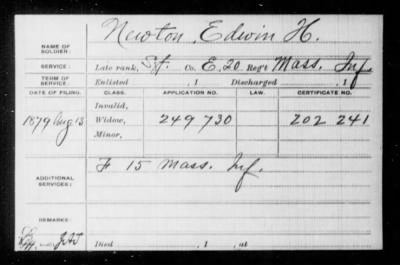 Newton, Edwin H.
NAME OF SOLDIER:
SERVICE: Late rank, Sgt. Co. E, 20 Reg't Mass. Inf.
TERM OF SERVICE Enlisted , 1 Discharged , 1
DATE OF FILING. CLASS. APPLICATION NO. LAW. CERTIFICATE NO.
Invalid,
1879 Aug 13 Widow, 249 730 202 241
Minor,
F 15 Mass. Inf.
ADDITIONAL SERVICES:
REMARKS:
Died , 1 , at